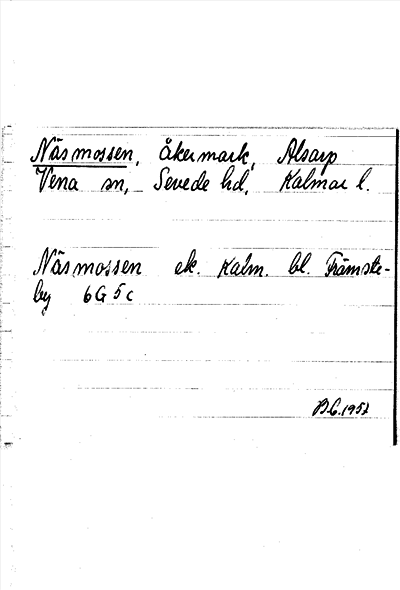 Näsmossen, åkermark, Alsarp
Vena sn, Sevede hd, Kalmar l.
Näsmossen ek. Kalm. bl. Främste-
by 6G5c